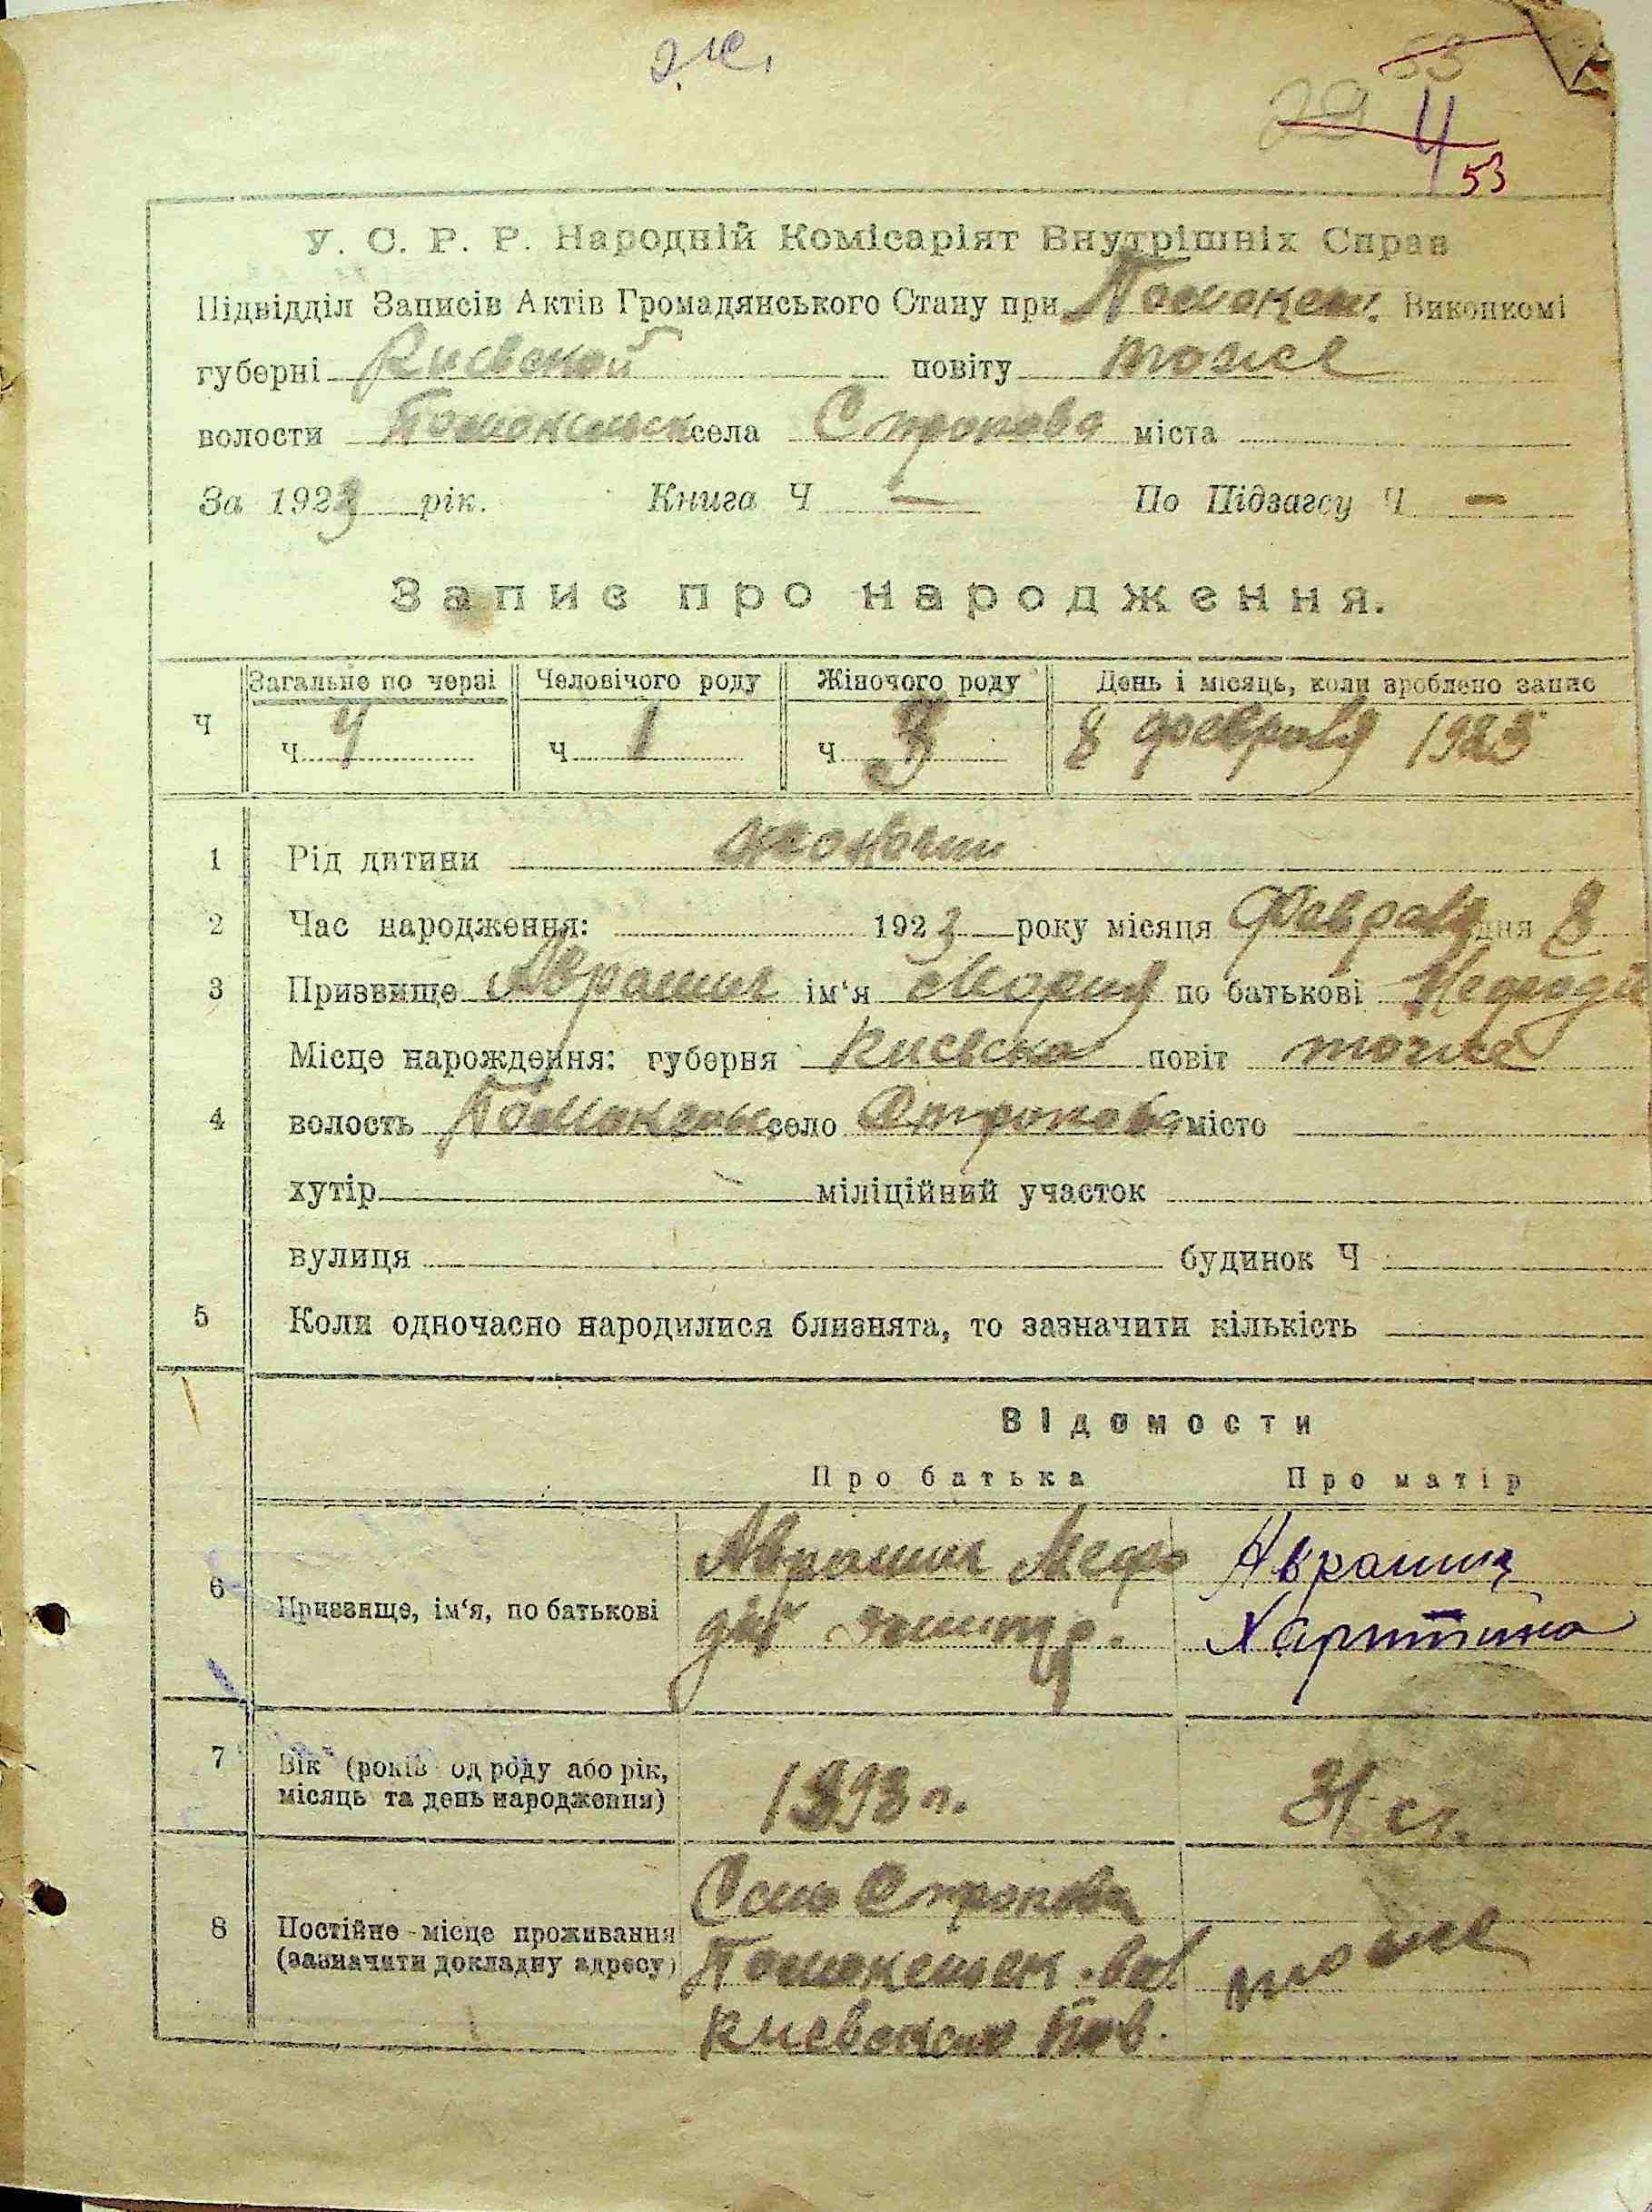 ж.
53
29 4
53
У. С. Р. Р. Народній Комісаріят Внутрішніх Справ
Підвідділ Записів Актів Громадянського Стану при Виконкомі
губерні Киевской повіту тоже
волости села Строкова міста
За 1923 рік. Книга Ч — По Підзагсу Ч —
Запис про народження.
Загальне по черзі Человічого роду Жіночого роду День і місяць, коли зроблено запис
Ч Ч 4 Ч 1 Ч 3 8 февраля 1923
1 Рід дитини
2 Час народження: 1923 року місяця Февраля дня 8
3 Призвище Аврамич ім'я Мария по батькові Мефоді
Місце нарождення: губерня Киевска повіт тоже
4 волость село Строкова місто
хутір міліційний участок
вулиця будинок Ч
5 Коли одночасно народилися близнята, то зазначити кількість
Відомости
Про батька Про матір
6 Призвище, ім'я, по батькові Аврамич Мефо Аврамич
дій Харитина
7 Вік (років од роду або рік, місяць та день народження) 1893 г. 31 г.
8 Постійне місце проживання (зазначити докладну адресу) Село Строкова
вол. тоже
Киевской Пов.